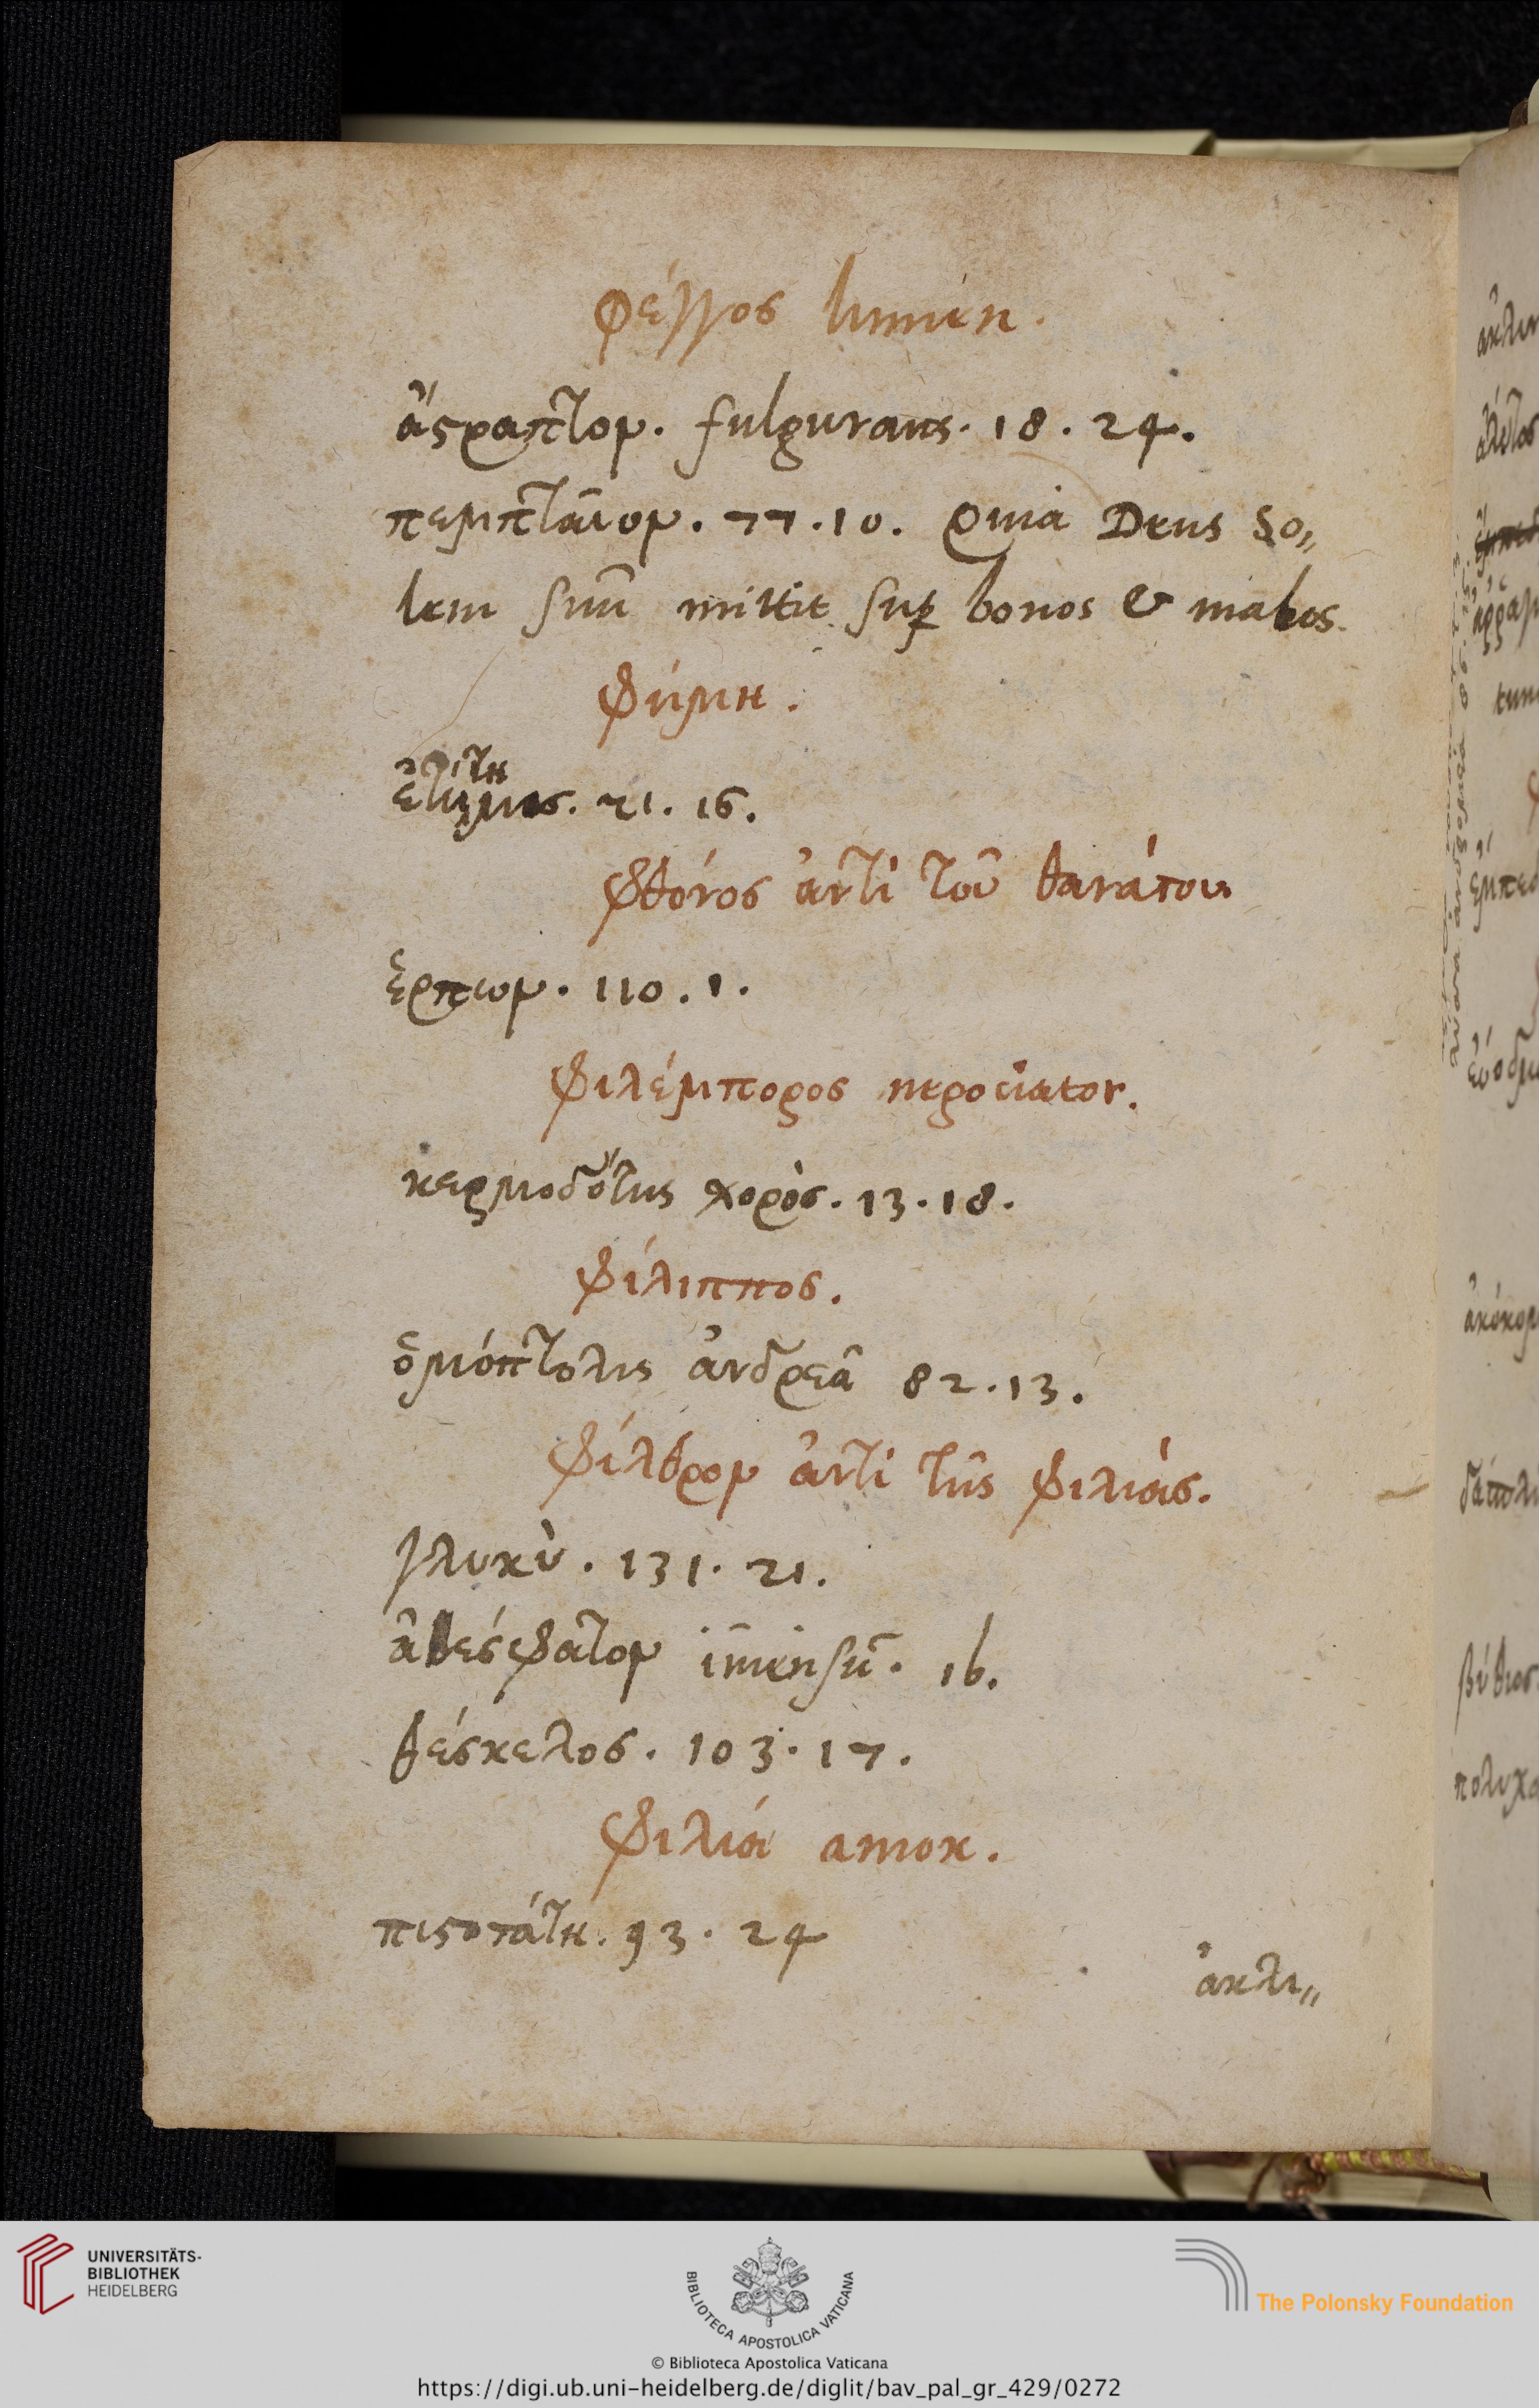 φέγγος lumen.
ἄςραπτον. fulgurans. 18. 24.
πεμπταῖον. 77. 10. Quia Deus So„
lem suũ mittit sup bonos & malos.
φήμη.
21. 16.
φθόνος ἀντὶ τοῦ θανάτου
ἕρπων. 110. 1.
φιλέμπορος negociator.
κερμοδότης χορὸς. 13. 18.
φίλιππος.
ὁμόπτολις ἀνδρεᾶ 82. 13.
φίλτρον ἀντὶ τῆς φιλιάς.
γλυκὺ. 131. 21.
ἀθέσφατον im̃ensũ. ib.
θέσκελος. 103. 17.
φιλιά amor.
πιςοτάτη. 93. 24
ἀκλι„
ἐμπεδ
βύθιος
πολυχα
UNIVERSITÄTS-
BIBLIOTHEK
HEIDELBERG
BIBLIOTECA APOSTOLICA VATICANA
The Polonsky Foundation
© Biblioteca Apostolica Vaticana
https://digi.ub.uni-heidelberg.de/diglit/bav_pal_gr_429/0272